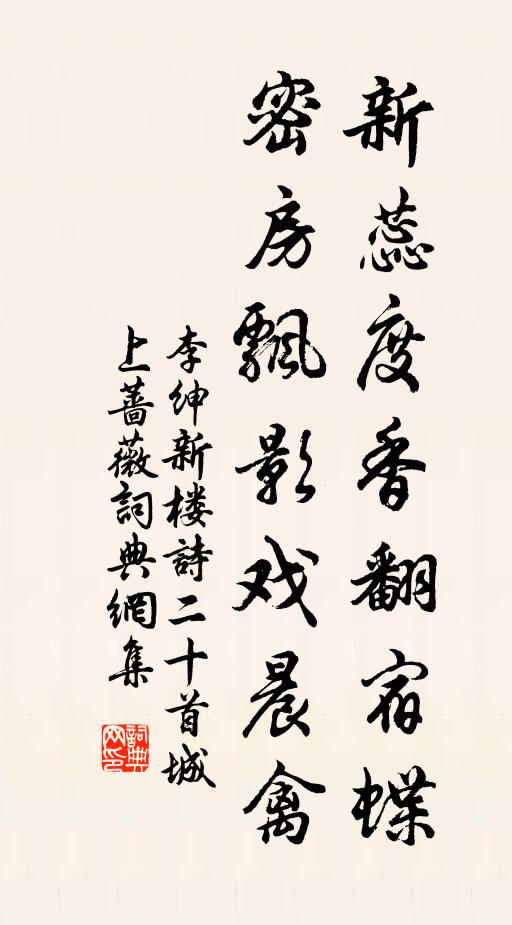 新蕊度香翻宿蝶
密房飄影戏晨禽
李绅新楼詩二十首城
上薔薇詞典網集
詞典
网印